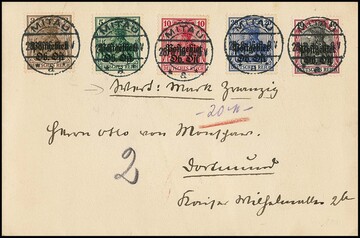 MITAU MITAU MITAU MITAU MITAU
Postgebiet Postgebiet Postgebiet Postgebiet Postgebiet
Ob. Ost Ob. Ost Ob. Ost Ob. Ost Ob. Ost
a a a a a
Wert: Mark Zwanzig
- 20 M -
Herrn Otto von
2
Dortmund
Kaiser Wilhelmallee